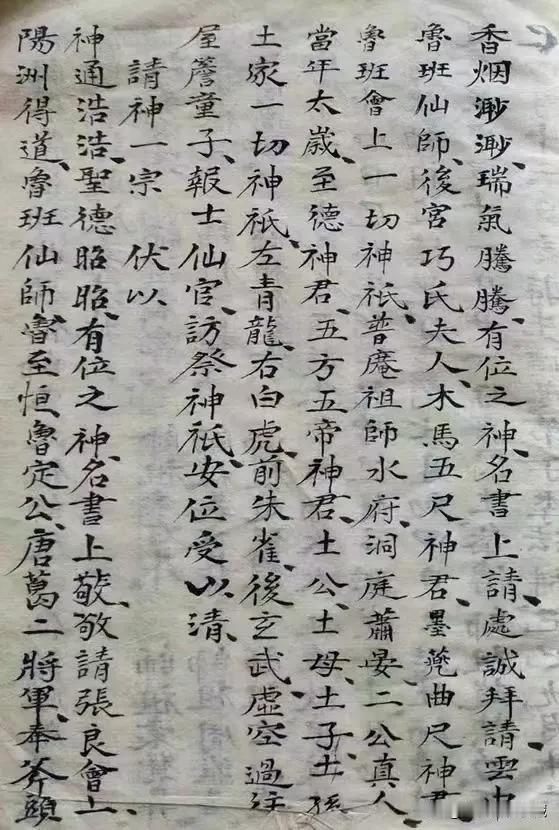 香烟渺渺、瑞氣騰騰、有位之神、名書上請、處誠拜請雲中
魯班仙師、後宮巧氏夫人、木馬五尺神君、墨蔸曲尺神君
魯班會上一切神祇、普庵祖師水府洞庭蕭晏二公真人、
當年太歲至德神君、五方五帝神君、土公、土母、土子、土孫
土家一切神祇、左青龍、右白虎、前朱雀、後玄武、虛空過往
屋簷童子、報士仙官、訪祭神祇、安位受以清、
請神一宗 伏以
神通浩浩、聖德昭昭、有位之神、名書上敬、敬請張良會上、
陽洲得道、魯班仙師、魯至恒、魯定公、唐葛二將軍、奉斧頭